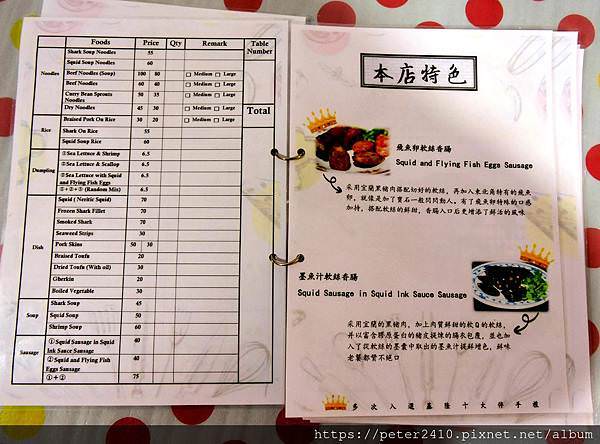 Foods Price Qty Remark Table Number
Noodles
Shark Soup Noodles 55
Squid Soup Noodles 60
Beef Noodles (Soup) 100 80 □ Medium □ Large
Beef Noodles 60 40 □ Medium □ Large
Curry Bean Sprouts Noodles 50 35 □ Medium □ Large
Dry Noodles 45 30 □ Medium □ Large
Total
Rice
Braised Pork On Rice 30 20 □ Medium □ Large
Shark On Rice 55
Squid Soup Rice 60
Dumpling
①Sea Lettuce & Shrimp 6.5
②Sea Lettuce & Scallop 6.5
③Sea Lettuce with Squid and Flying Fish Eggs 6.5
①+②+③ (Random Mix) 6.5
Dish
Squid ( Neritic Squid) 70
Frozen Shark Fillet 70
Smoked Shark 70
Seaweed Strips 30
Pork Skins 50 30
Braised Toufu 20
Dried Toufu (With oil) 30
Gherkin 20
Boiled Vegetable 30
Soup
Shark Soup 45
Squid Soup 50
Shrimp Soup 60
Sausage
①Squid Sausage in Squid Ink Sauce Sausage 40
②Squid and Flying Fish Eggs Sausage 40
①+② 75
本店特色
飛魚卵軟絲香腸
Squid and Flying Fish Eggs Sausage
采用宜蘭黑豬肉搭配切好的軟絲，再加入東北角特有的飛魚
卵，就像是加了寶石一般閃閃動人。有了飛魚卵特殊的口感
加持，搭配軟絲的鮮甜，香腸入口后更增添了鮮活的風味
墨魚汁軟絲香腸
Squid Sausage in Squid Ink Sauce Sausage
采用宜蘭的黑豬肉，加上肉質鮮甜的軟Q的軟絲，
并以富含膠原蛋白的豬皮提煉的腸衣包覆，並也加
入了從軟絲的墨囊中取出的墨魚汁提鮮增色，鮮味
老饕都贊不絕口
多次入選基隆十大伴手禮
https://peter2410.pixnet.net/album